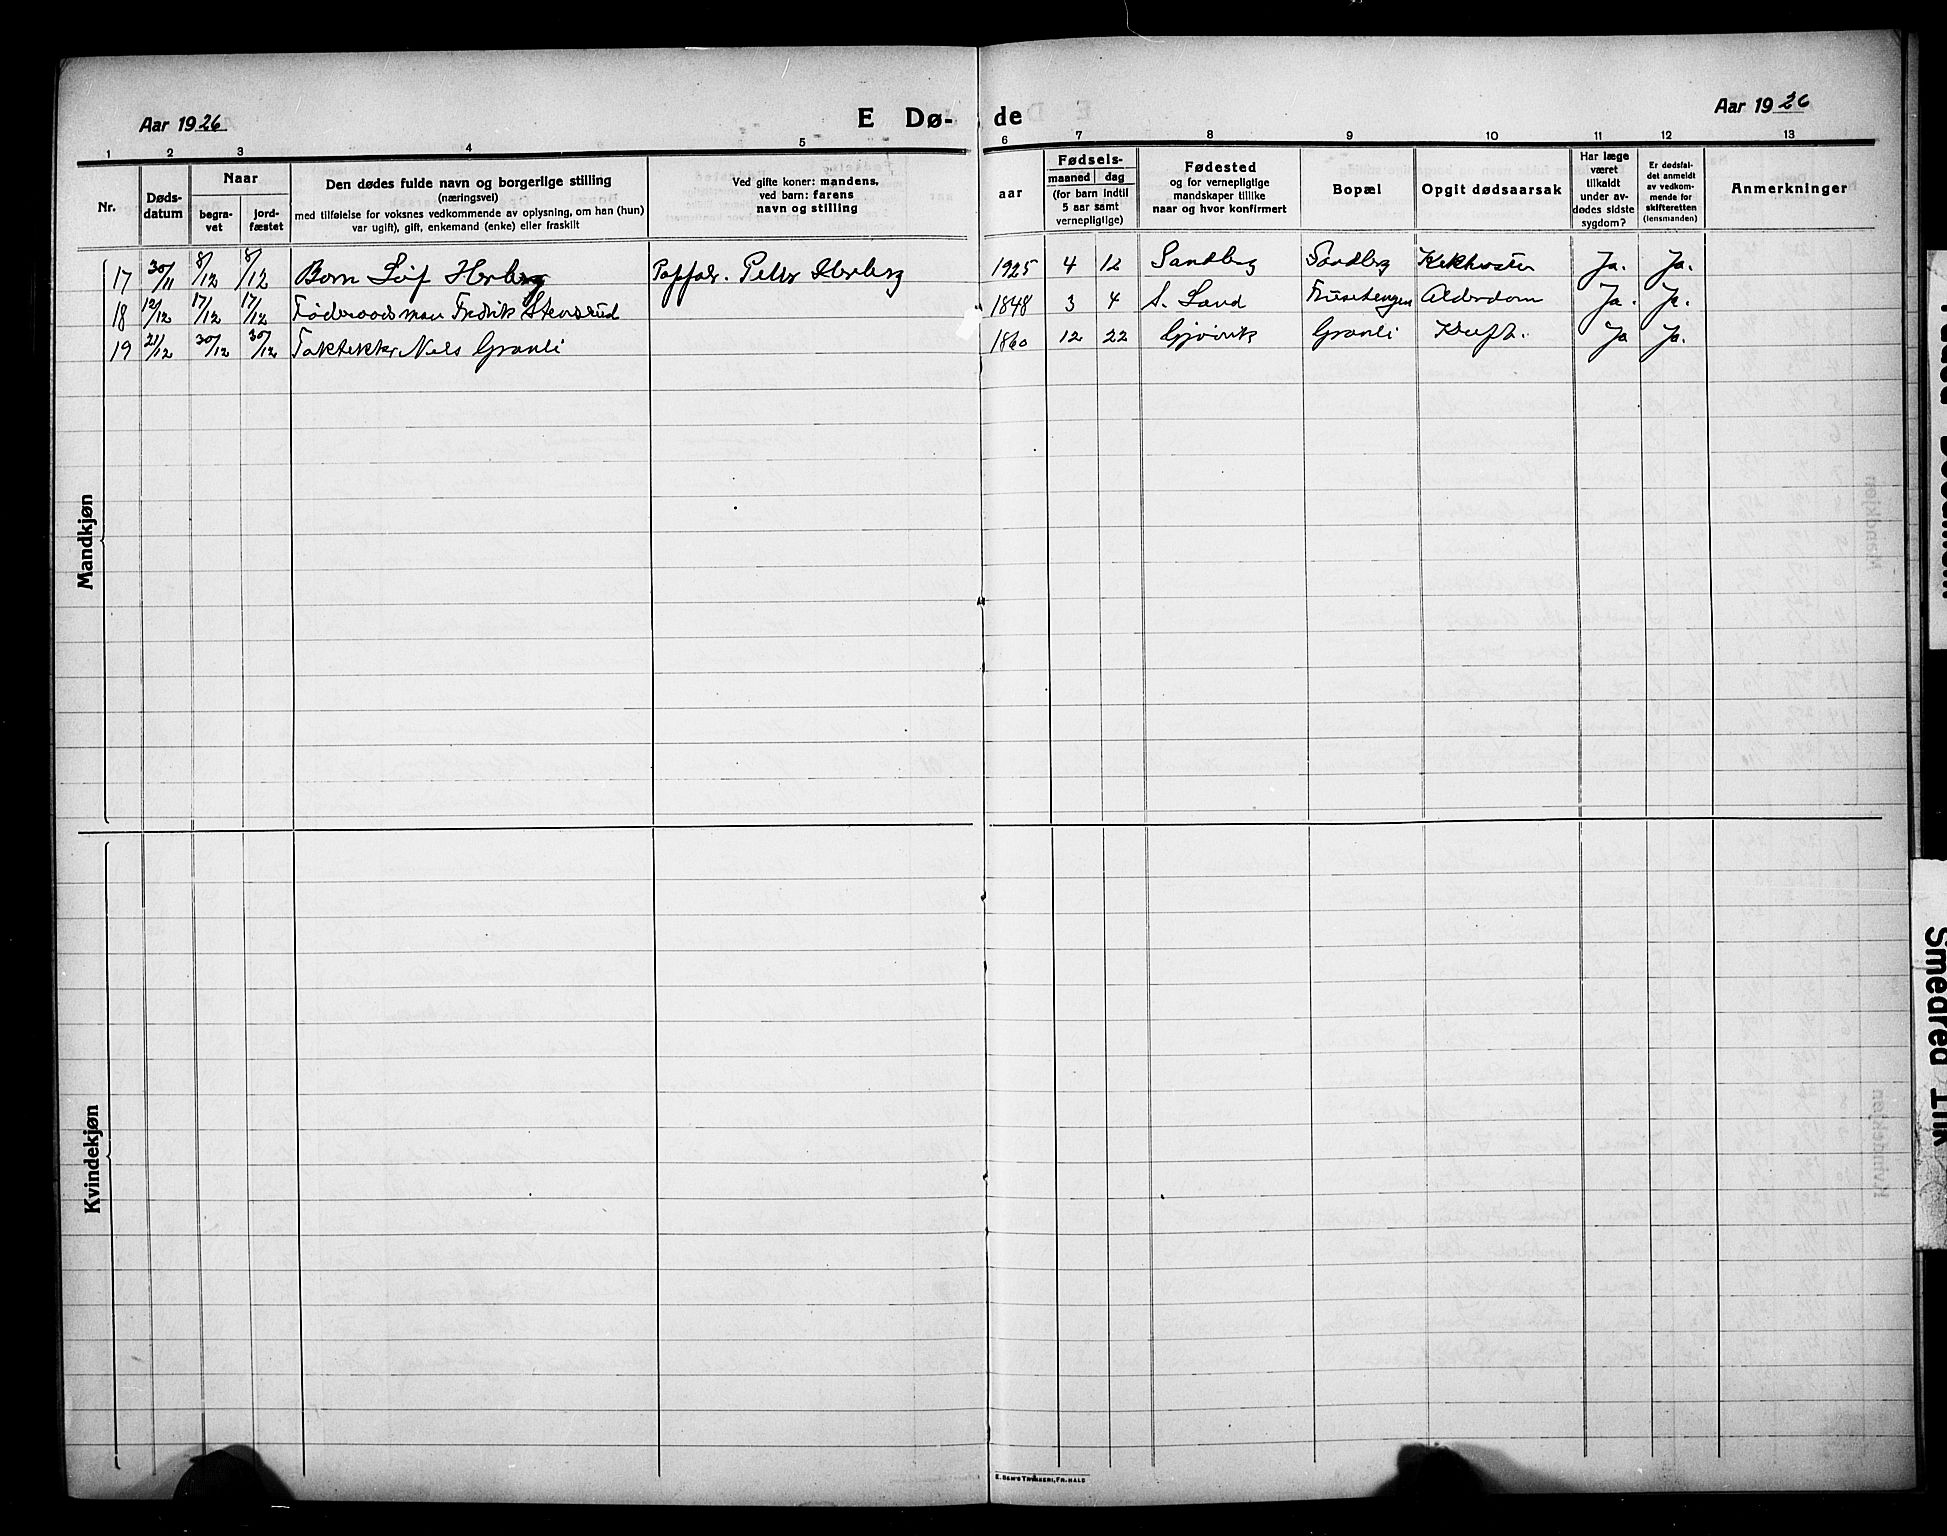 Aar 1926
E Dø-
de
Aar 1926
1 2 3 4 5 6 7 8 9 10 11 12 13
Nr.
Døds-
datum
Naar
begra-
vet
jord-
fæstet
Den dødes fulde navn og borgerlige stilling
(næringsvei)
med tilføielse for voksnes vedkommende av oplysning, om han (hun)
var ugift), gift, enkemand (enke) eller fraskilt
Ved gifte koner: mandens,
ved barn: farens
navn og stilling
aar
Fødsels-
maaned dag
(for barn indtil
5 aar samt
vernepligtige)
Fødested
og for vernepligtige
mandskaper tillike
naar og hvor konfirmert
Bopæl
Opgit dødsaarsak
Har læge
været
tilkaldt
under av-
dødes sidste
sygdom?
Er dødsfal-
det anmeldt
av vedkom-
mende for
skifteretten
(lensmanden)
Anmerkninger
17 30/11 8/12 8/12 Barn Leif Herberg Peter Herberg 1925 4 12 Sandberg Sandberg Kikhoste Ja. Ja.
18 12/12 17/12 17/12 Føderaadsman Fredrik Stensrud 1848 3 4 S. Land Alderdom Ja. Ja.
19 21/12 30/12 30/12 Taktekker Nils Granli 1860 12 22 Gjøvik Granli Kræft. Ja Ja.
Mandkjøn
Kvindekjøn
Smedred Ink